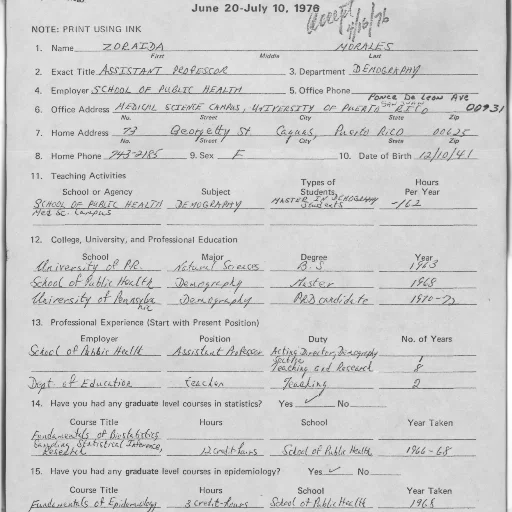 June 20-July 10, 1976
Accept 4/15/76
NOTE: PRINT USING INK
1. Name ZORAIDA MORALES
First Middle Last
2. Exact Title ASSISTANT PROFESSOR 3. Department DEMOGRAPHY
4. Employer SCHOOL OF PUBLIC HEALTH 5. Office Phone
Ponce De Leon Ave
SAN JUAN
6. Office Address MEDICAL SCIENCE CAMPUS, UNIVERSITY OF PUERTO RICO 00931
No. Street City State Zip
7. Home Address 73 Georgetty St Caguas, Puerto Rico 00625
No. Street City State Zip
8. Home Phone 743-2185 9. Sex F 10. Date of Birth 12/10/41
11. Teaching Activities
School or Agency Subject Types of Students Hours Per Year
SCHOOL OF PUBLIC HEALTH DEMOGRAPHY MASTER IN DEMOGRAPHY Students -162
Med Sc. Campus
12. College, University, and Professional Education
School Major Degree Year
University of P.R. Natural Sciences B.S. 1963
School of Public Health Demography Master 1968
University of Pennsylvania Demography PhD candidate 1970-72
13. Professional Experience (Start with Present Position)
Employer Position Duty No. of Years
School of Public Health Assistant Professor Acting Director, Demography Section 1
Teaching and Research 8
Dept. of Education Teacher Teaching 2
14. Have you had any graduate level courses in statistics? Yes ✓ No
Course Title Hours School Year Taken
Fundamentals of Biostatistics
Sampling, Statistical Inference,
Research 12 credit hours School of Public Health 1966-68
15. Have you had any graduate level courses in epidemiology? Yes ✓ No
Course Title Hours School Year Taken
Fundamentals of Epidemiology 3 credit-hours School of Public Health 1968